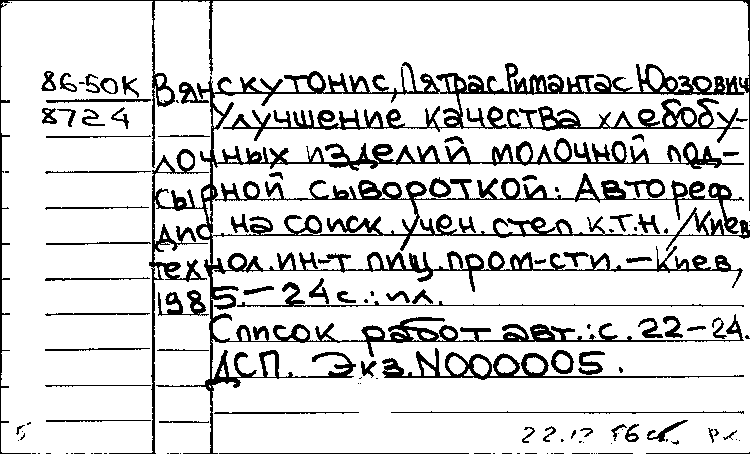 86-50К Вянскутонис, Пятрас Римантас Юозович
8724 Улучшение качества хлебобу-
лочных изделий молочной под-
сырной сывороткой: Автореф.
дис. на соиск. учен. степ. к.т.н. / Киев
технол. ин-т пищ. пром-сти. - Киев,
1985. - 24 с.: ил.
Список работ авт.: с. 22-24.
ДСП. Экз. N000005.
Б